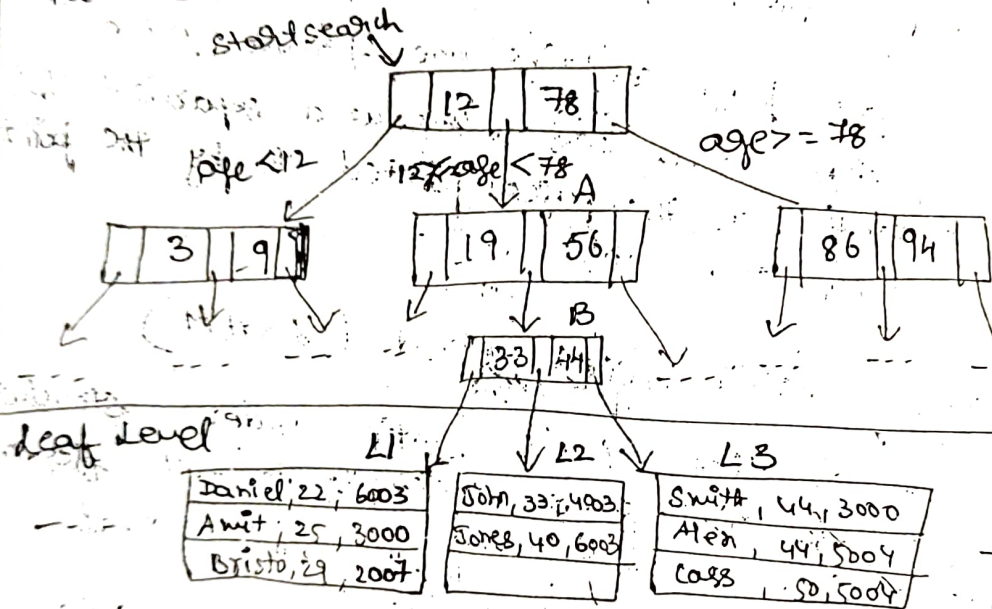 start search
12 78
age <12
12<=age < 78
age >= 78
A
3 9
19 56
86 94
B
33 44
Leaf Level
L1
L2
L3
Daniel, 22, 6003
Amit, 25, 3000
Bristo, 29, 2007
John, 33, 4003
Jones, 40, 6003
Smith, 44, 3000
Alex, 44, 5004
Cass, 50, 5004